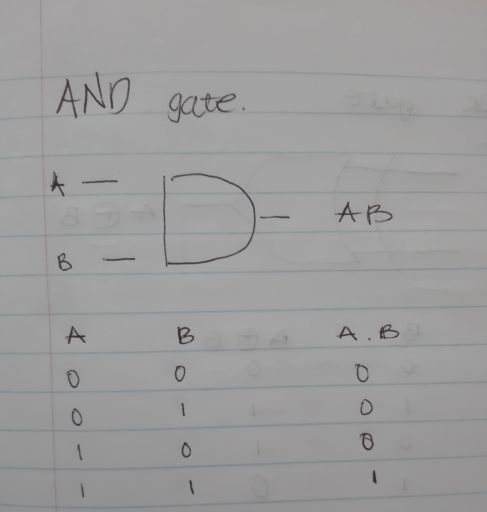 AND gate.
A
AB
B
A B A.B
0 0 0
0 1 0
1 0 0
1 1 1